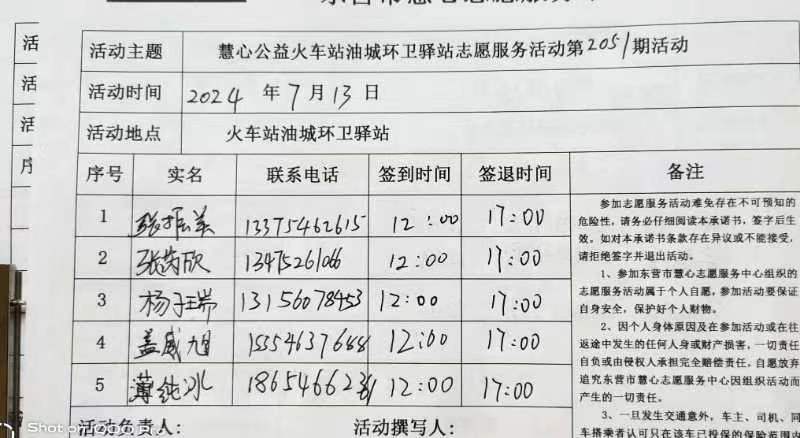 活动主题 慧心公益火车站油城环卫驿站志愿服务活动第2051期活动
活动时间 2024 年 7 月 13 日
活动地点 火车站油城环卫驿站
序号 实名 联系电话 签到时间 签退时间 备注
1 张振兰 13375462615 12:00 17:00
2 张芮欣 13475261066 12:00 17:00
3 杨子瑞 13156078453 12:00 17:00
4 盖威旭 15554637668 12:00 17:00
5 薄纯冰 1865466236 12:00 17:00
参加志愿服务活动难免存在不可预知的
危险性,请务必仔细阅读本承诺书,签字后生
效。如对本承诺书条款存在异议或不能接受,
请拒绝签字并退出活动。
1、参加东营市慧心志愿服务中心组织的
志愿服务活动属于个人自愿,参加活动要保证
自身安全,保护好个人财物。
2、因个人身体原因及在参加活动或在往
返途中发生的任何人身或财产损害,一切责任
自负或由侵权人承担完全赔偿责任,自愿放弃
追究东营市慧心志愿服务中心因组织活动而
产生的一切责任。
3、一旦发生交通意外,车主、司机、同
车搭乘者认可只在该车已投保的保险范围内
活动负责人: 活动撰写人:
Shot on